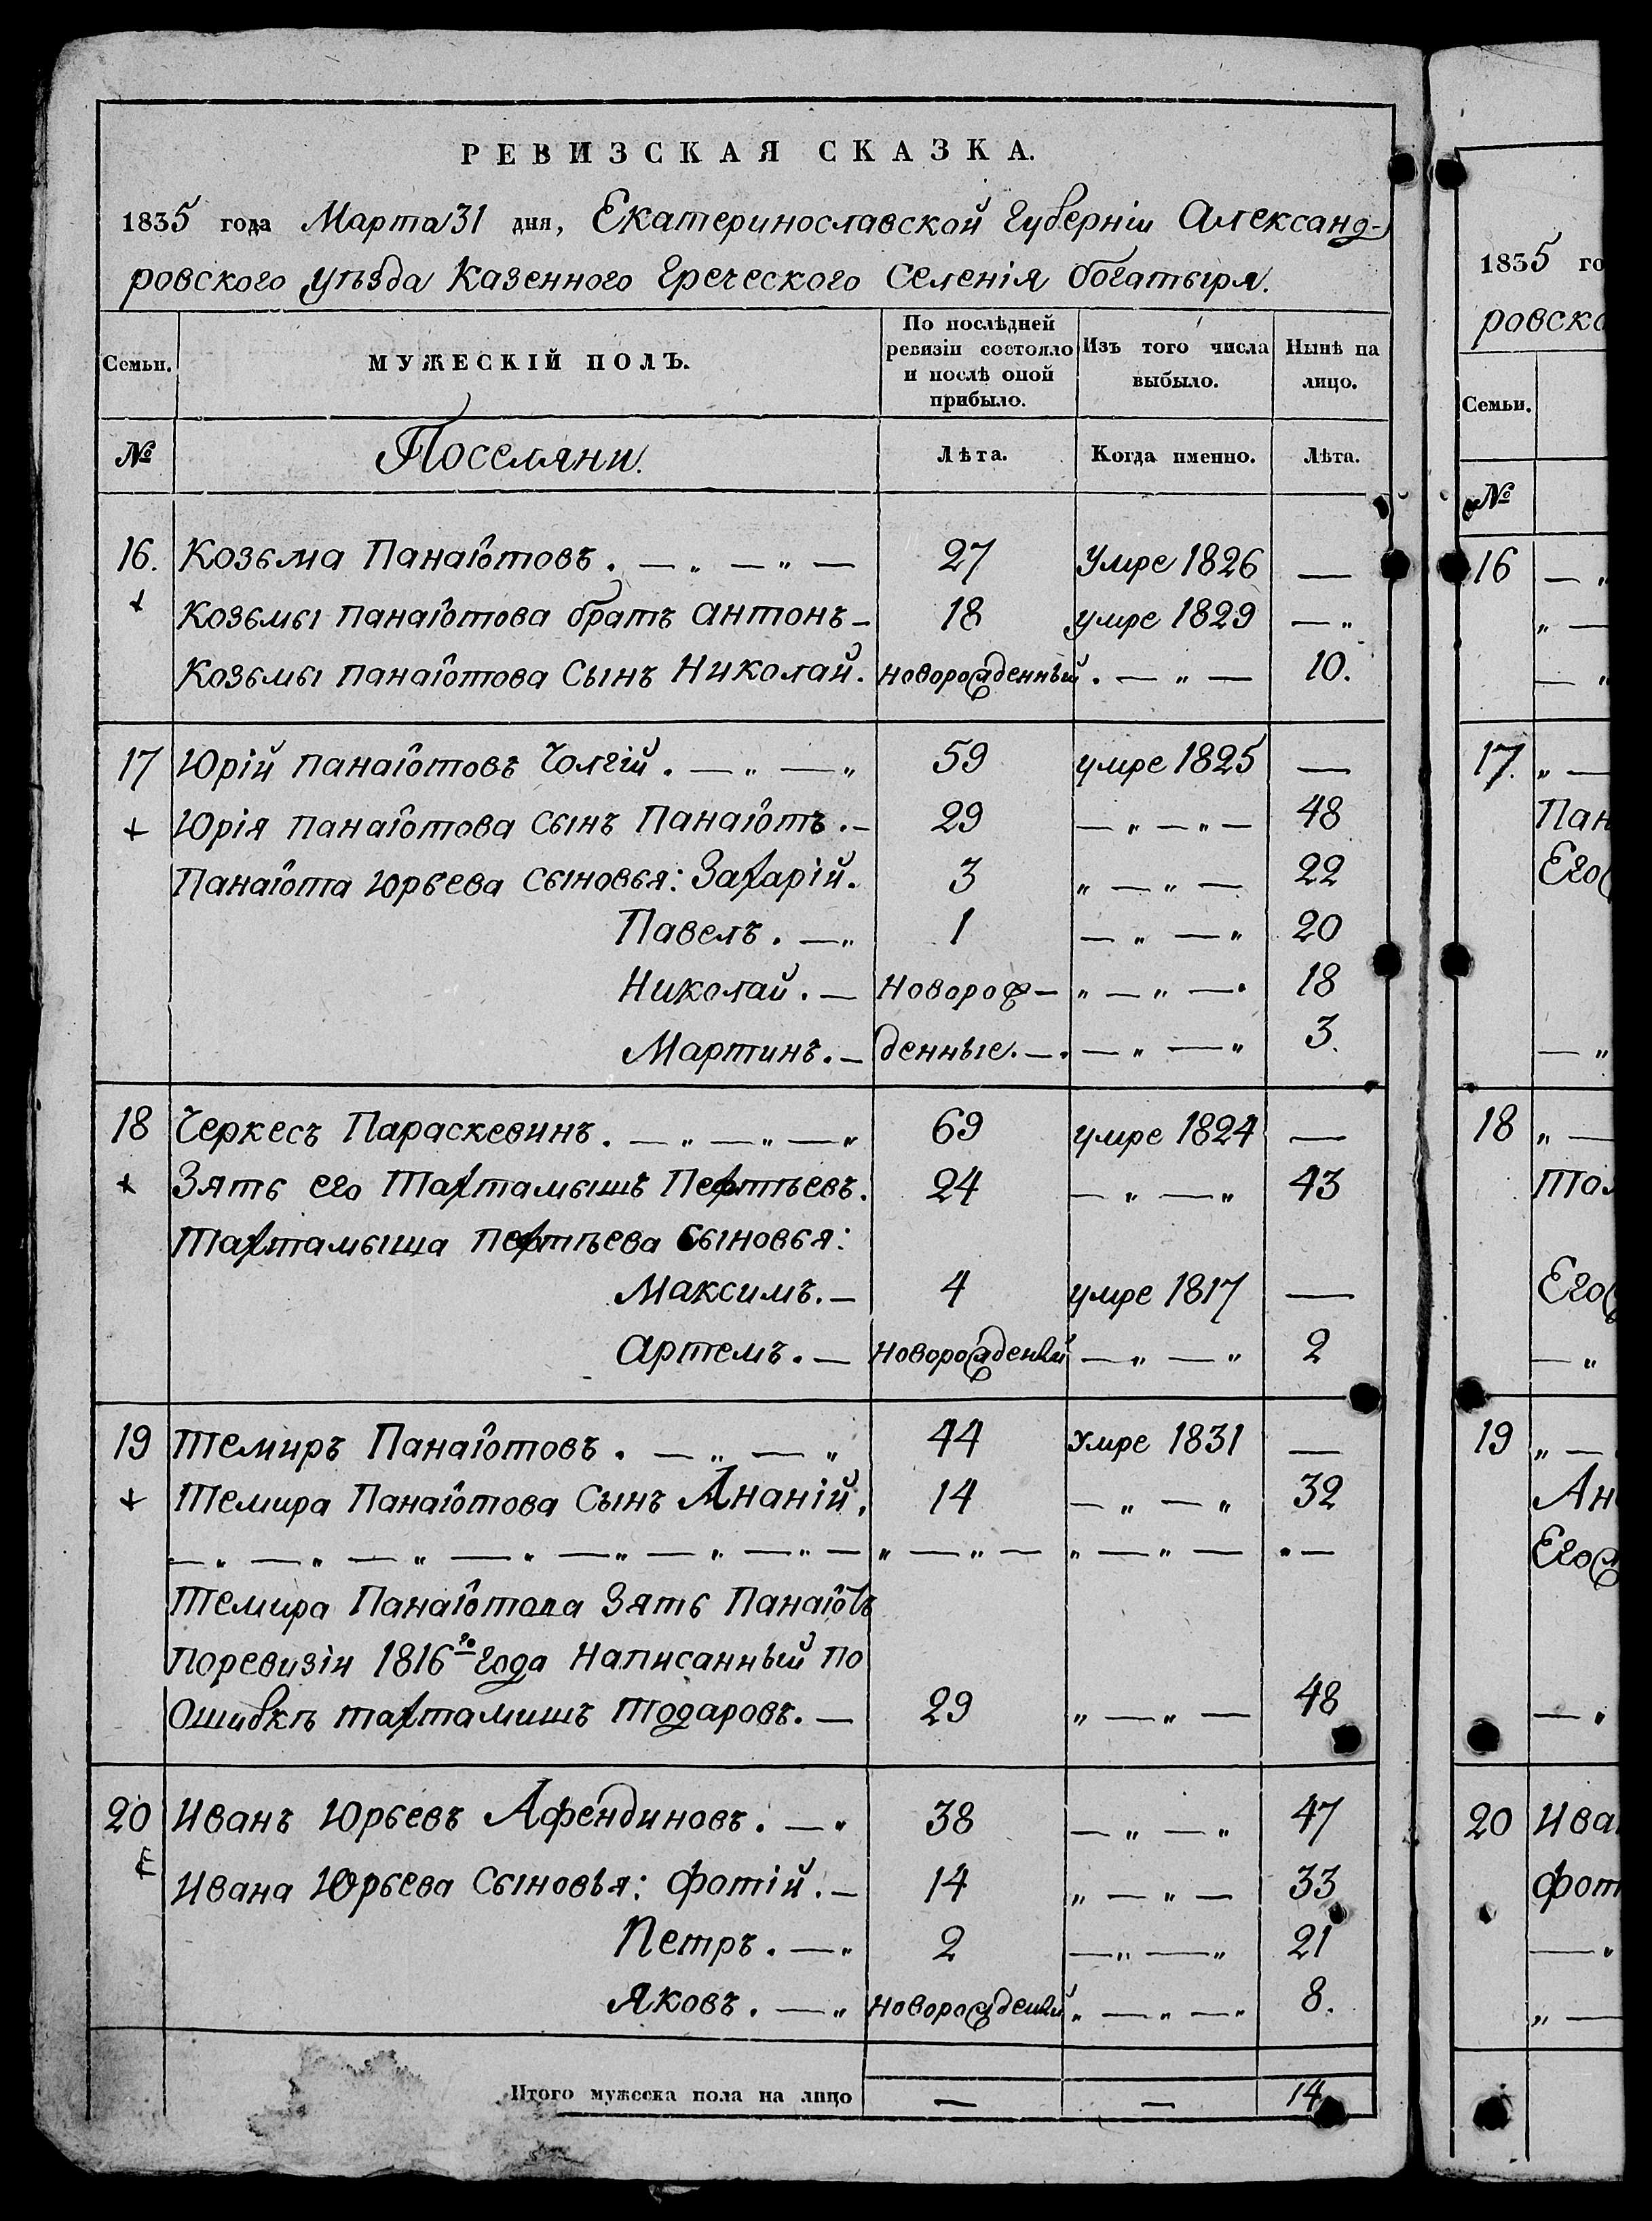 РЕВИЗСКАЯ СКАЗКА.
1835 года Марта 31 дня, Екатеринославской Губерніи Александ-
ровского уѣзда Казенного Греческого Селенія богатыря.
Семьи. МУЖЕСКІЙ ПОЛЪ. По послѣдней ревизіи состояло и послѣ оной прибыло. Изъ того числа выбыло. Нынѣ на лицо.
№ Поселяни. Лѣта. Когда именно. Лѣта.
16. Козьма Панаіотовъ. — „ — „ — 27 Умре 1826 —
+ Козьмы панаіотова братъ антонъ – 18 умре 1829 — „
Козьмы панаіотова Сынъ Николай. новорожденный. — „ — 10.
17 Юрій панаіотовъ Чолгій. — „ — „ 59 умре 1825 —
+ Юрія панаіотова сынъ Панаіотъ. – 29 — „ — „ — 48
Панаіота Юрьева сыновья: Захарій. 3 „ — „ — 22
Павелъ. — „ 1 — „ — „ 20
Николай. — Новорож– „ — „ — „ 18
Мартинъ. – денные. — . — „ — „ 3.
18 Черкесъ Параскевинъ. — „ — „ — „ 69 умре 1824 —
+ Зять его Тахтамышъ Пефтѣевъ. 24 — „ — „ 43
Тахтамыша пефтѣева Сыновья:
Максимъ. – 4 умре 1817 —
артемъ. — новорожденный — „ — „ 2
19 Темиръ Панаіотовъ. — „ — „ 44 умре 1831 —
+ Темира Панаіотова Сынъ Ананій. 14 — „ — „ 32
— „ — „ — „ — „ — „ — „ — „ — „ — „ — „ — „ — „ —
Темира Панаіотова Зять Панаіотъ
поревизіи 1816го года Написанный по
Ошибкѣ тахтамишъ Тодаровъ. — 29 „ — „ — 48
20 Иванъ Юрьевъ Афендиновъ. — „ 38 — „ — „ 47
Ивана Юрьева Сыновья: фотій. – 14 „ — „ — 33
Петръ. — „ 2 — „ — „ 21
Яковъ. — „ новорожденный „ — „ — „ 8.
Итого мужеска пола на лицо — — 14
1835 го
ровско
Семьи.
№
16 — „
„ —
— „
17. „ —
Пан
Его
— „
18 „ —
Тах
Его
— „
19 „ —
Ан
Его
— „
20 Ива
фот
— „
„ —